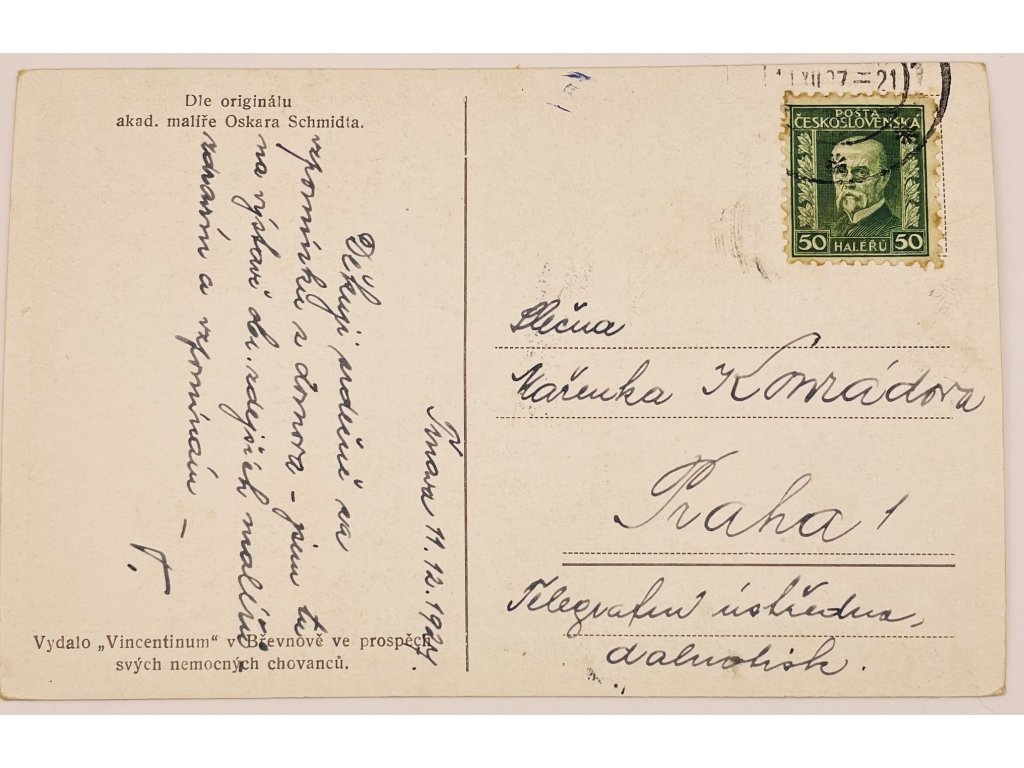 Dle originálu
akad. malíře Oskara Schmidta.
Trnava 11.12.1927.
Děkuji srdečně za
vzpomínku z domova – jsem tu
na výstavě obr. zdejších malířů
zdravím a vzpomínám –
Vydalo „Vincentinum“ v Břevnově ve prospěch
svých nemocných chovanců.
XII 27 = 21
POŠTA
ČESKOSLOVENSKÁ
50 HALÉŘŮ 50
Slečna
Mařenka Konrádova
Praha 1
Telegrafní ústředna,
dalnotisk.